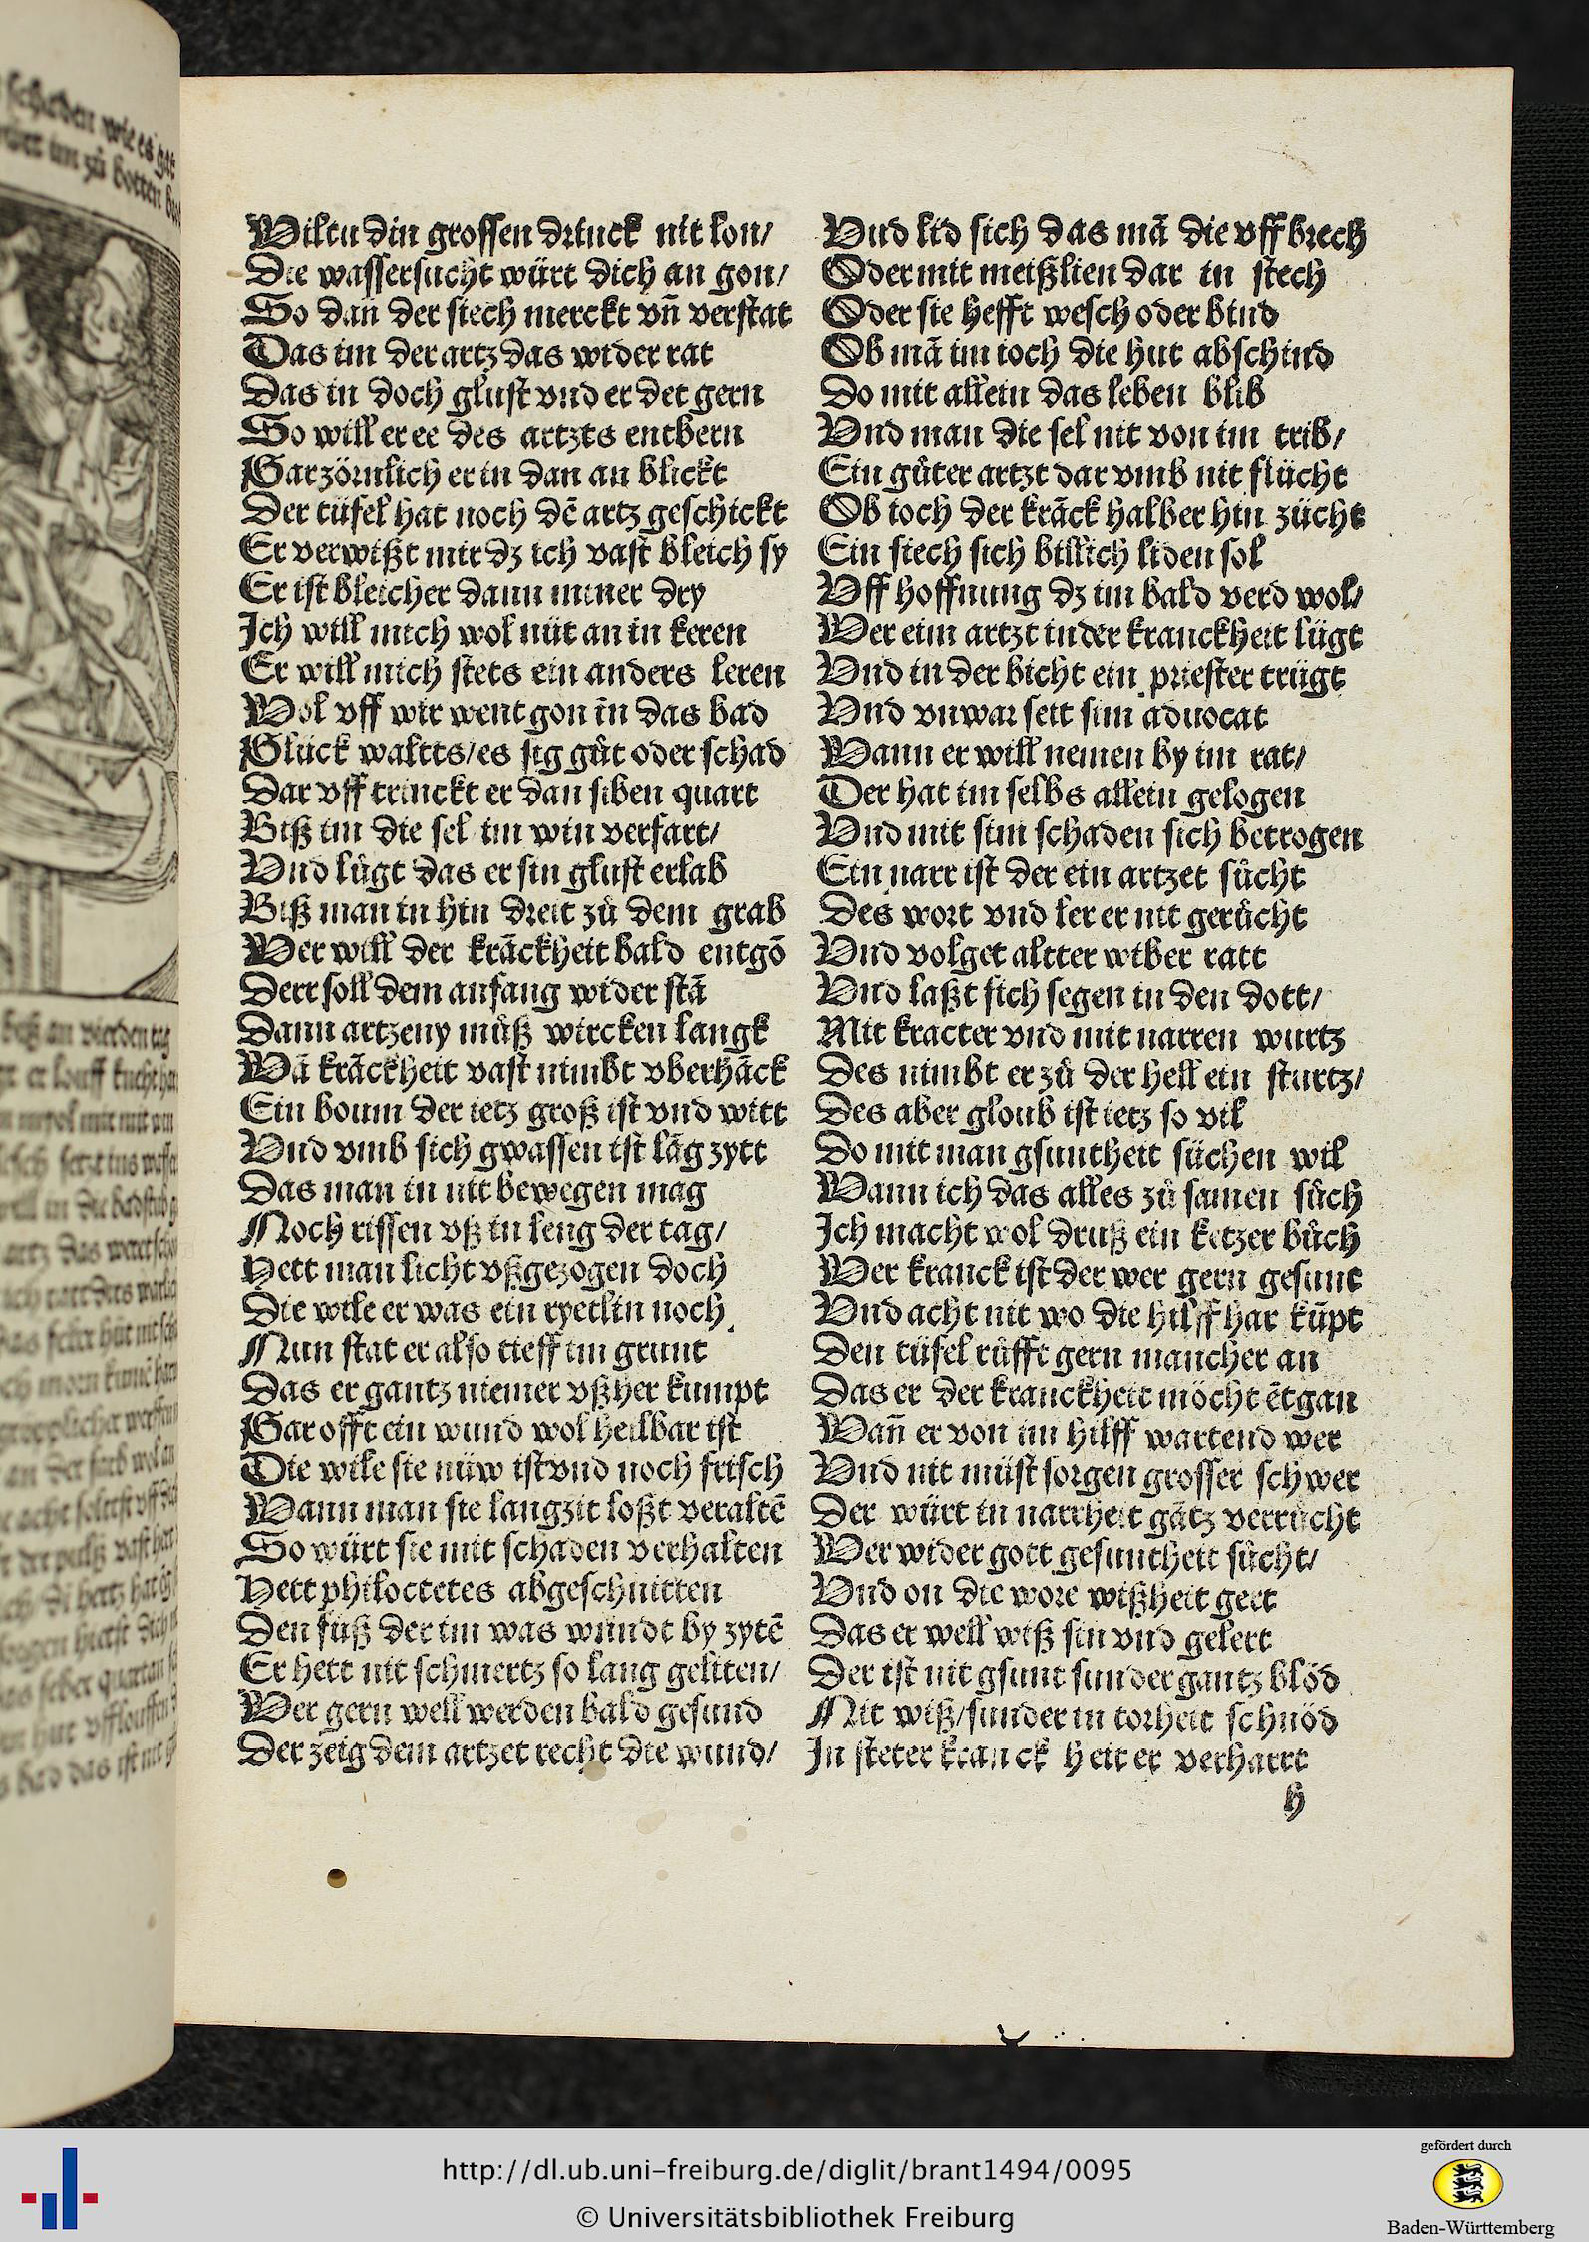 Wiltu din grossen drinck nit lon/
Die wassersucht würt dich an gon/
So dañ der siech merckt vñ verstat
Das im der artz das wider rat
Das in doch glust vnd er det gern
So will er ee des artzts entbern
Gar zörnlich er in dan an blickt
Der tüfel hat noch dē artz geschickt
Er verwißt mir dz ich vast bleich sy
Er ist bleicher dann miner dry
Ich will mich wol nüt an in keren
Er will mich stets ein anders leren
Wol vff wir went gon in das bad
Glück waltts/es sig gůt oder schad
Dar vff trinckt er dan siben quart
Biß im die sel im win verfart/
Vnd lůgt das er sin glust erlab
Biß man in hin dreit zů dem grab
Wer will der krāckheit bald entgō
Derr soll dem anfang wider stā
Dann artzeny můß wircken langk
Wā krāckheit vast nimbt vberhāck
Ein boum der ietz groß ist vnd witt
Vnd vmb sich gwassen ist lāg zytt
Das man in nit bewegen mag
Noch rissen vß in leng der tag/
Hett man licht vßgezogen doch
Die wile er was ein ryetlin noch
Nun stat er also tieff im grunt
Das er gantz niemer vßher kumpt
Gar offt ein wund wol heilbar ist
Die wile sie nüw ist vnd noch frisch
Wann man sie langzit loßt veraltē
So würt sie mit schaden verhalten
Hett philoctetes abgeschnitten
Den fůß der im was wundt by zytē
Er hett nit schmertz so lang geliten/
Wer gern well werden bald gesund
Der zeig dem artzet recht die wund/
Vnd lid sich das mā die vff brech
Oder mit meißlien dar in stech
Oder sie hefft wesch oder bind
Ob mā im ioch die hut abschind
Do mit allein das leben blib
Vnd man die sel nit von im trib/
Ein gůter artzt dar vmb nit flücht
Ob ioch der krāck halber hin zücht
Ein siech sich billich liden sol
Vff hoffnung dz im bald werd wol/
Wer eim artzt in der kranckheit lügt
Vnd in der bicht ein priester trügt
Vnd vnwar seit sim aduocat
Wann er will nemen by im rat/
Der hat im selbs allein gelogen
Vnd mit sim schaden sich betrogen
Ein narr ist der ein artzet sůcht
Des wort vnd ler er nit gerůcht
Vnd volget altter wiber ratt
Vnd laßt sich segen in den dott/
Mit kracter vnd mit narren wurtz
Des nimbt er zů der hell ein sturtz/
Des aber gloub ist ietz so vil
Do mit man gsuntheit sůchen wil
Wann ich das alles zů samen sůch
Ich macht wol druß ein ketzer bůch
Wer kranck ist der wer gern gesunt
Vnd acht nit wo die hilff har kūpt
Den tüfel růfft gern mancher an
Das er der kranckheit möcht ētgan
Wañ er von im hilff wartend wer
Vnd nit müst sorgen grosser schwer
Der würt in narrheit gātz verrůcht
Wer wider gott gesuntheit sůcht/
Vnd on die wore wißheit gert
Das er well wiß sin vnd gelert
Der ist nit gsunt sunder gantz blöd
Nit wiß/sunder in torheit schnöd
In steter kranck heit er verharrt
h
http://dl.ub.uni-freiburg.de/diglit/brant1494/0095
© Universitätsbibliothek Freiburg
gefördert durch
Baden-Württemberg